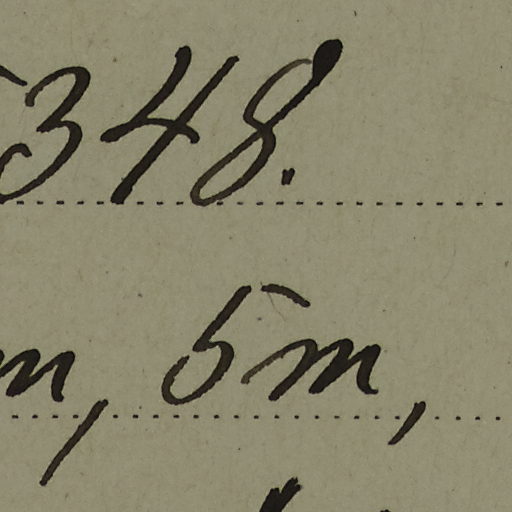 348.
m, 5m,